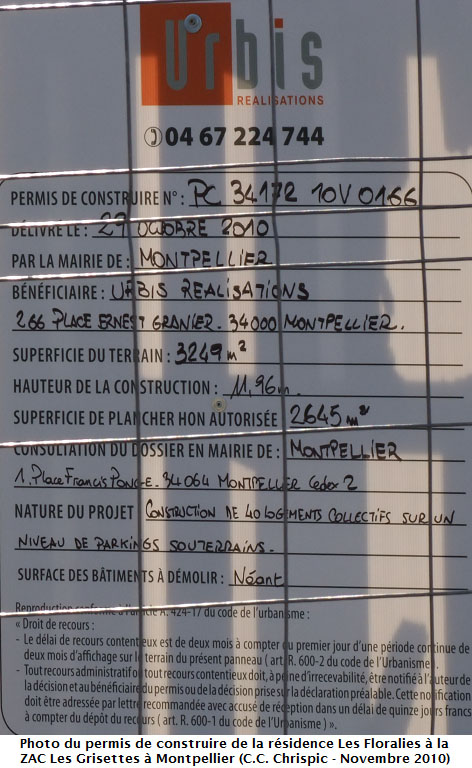 Urbis
REALISATIONS
04 67 224 744
PERMIS DE CONSTRUIRE N° : PC 34172 10V0166
DÉLIVRÉ LE : 27 OCTOBRE 2010
PAR LA MAIRIE DE : MONTPELLIER
BÉNÉFICIAIRE : URBIS REALISATIONS
266 PLACE ERNEST GRANIER. 34000 MONTPELLIER.
SUPERFICIE DU TERRAIN : 3249 m²
HAUTEUR DE LA CONSTRUCTION : 11,96m.
SUPERFICIE DE PLANCHER HON AUTORISÉE 2645 m²
CONSULTATION DU DOSSIER EN MAIRIE DE : MONTPELLIER
1. Place Francis Ponge. 34064 MONTPELLIER Cedex 2
NATURE DU PROJET CONSTRUCTION DE 40 LOGEMENTS COLLECTIFS SUR UN
NIVEAU DE PARKINGS SOUTERRAINS.
SURFACE DES BÂTIMENTS À DÉMOLIR : Néant
Reproduction conforme à l'article A. 424-17 du code de l'urbanisme :
« Droit de recours :
- Le délai de recours contentieux est de deux mois à compter du premier jour d'une période continue de
deux mois d'affichage sur le terrain du présent panneau ( art. R. 600-2 du code de l'Urbanisme ).
- Tout recours administratif ou tout recours contentieux doit, à peine d'irrecevabilité, être notifié à l'auteur de
la décision et au bénéficiaire du permis ou de la décision prise sur la déclaration préalable. Cette notification
doit être adressée par lettre recommandée avec accusé de réception dans un délai de quinze jours francs
à compter du dépôt du recours ( art. R. 600-1 du code de l'Urbanisme ) ».
Photo du permis de construire de la résidence Les Floralies à la
ZAC Les Grisettes à Montpellier (C.C. Chrispic - Novembre 2010)